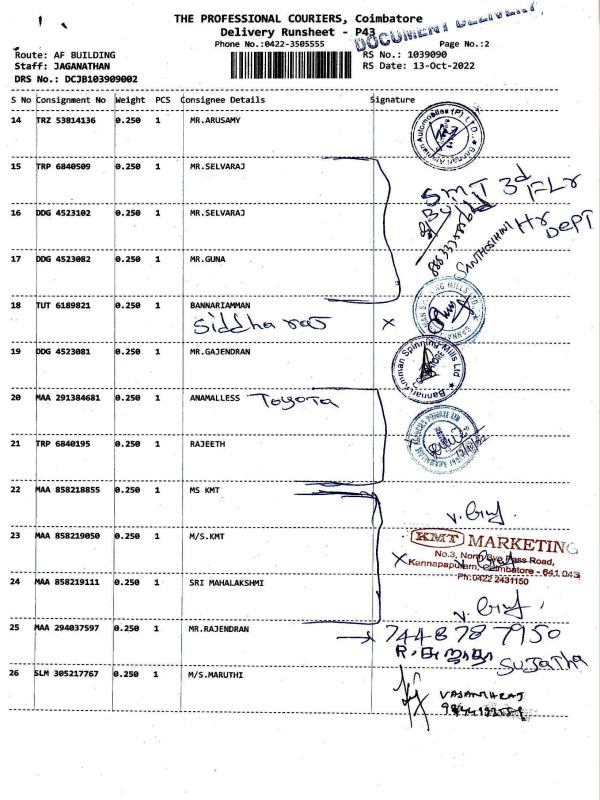 THE PROFESSIONAL COURIERS, Coimbatore
Delivery Runsheet - P43
DOCUMENT DELIVERY
Phone No.:0422-3505555
Page No.:2
Route: AF BUILDING
RS No.: 1039090
Staff: JAGANATHAN
RS Date: 13-Oct-2022
DRS No.: DCJB103909002
S No Consignment No Weight PCS Consignee Details Signature
14 TRZ 53814136 0.250 1 MR.ARUSAMY
15 TRP 6840509 0.250 1 MR.SELVARAJ
SMT 3d FLr
16 DDG 4523102 0.250 1 MR.SELVARAJ
Hr DEPT
SANTHOSHINI
17 DDG 4523082 0.250 1 MR.GUNA
18 TUT 6189821 0.250 1 BANNARIAMMAN
Siddha x
19 DDG 4523081 0.250 1 MR.GAJENDRAN
Bannari Amman Spinning Mills Ltd
20 MAA 291384681 0.250 1 ANAMALLESS Toyota
21 TRP 6840195 0.250 1 RAJEETH
22 MAA 858218855 0.250 1 MS KMT
23 MAA 858219050 0.250 1 M/S.KMT
KMT MARKETING
No.3, North Bye Pass Road,
Kannapapuram, Coimbatore - 641 043
Ph:0422 2431150
24 MAA 858219111 0.250 1 SRI MAHALAKSHMI
25 MAA 294037597 0.250 1 MR.RAJENDRAN
7448787950
R. சுஜாதா SUJATHA
26 SLM 305217767 0.250 1 M/S.MARUTHI
VASANTHRAJ